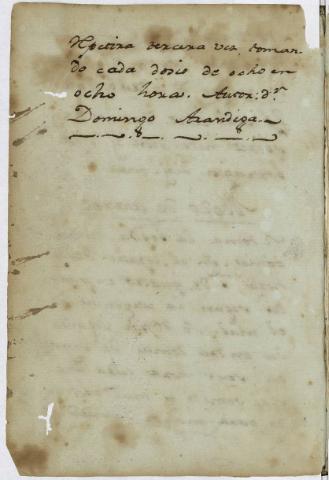 Repetira tercera vez, toman-
do cada dosis de ocho en
ocho hora. Autor: d.r
Domingo Arandiga.